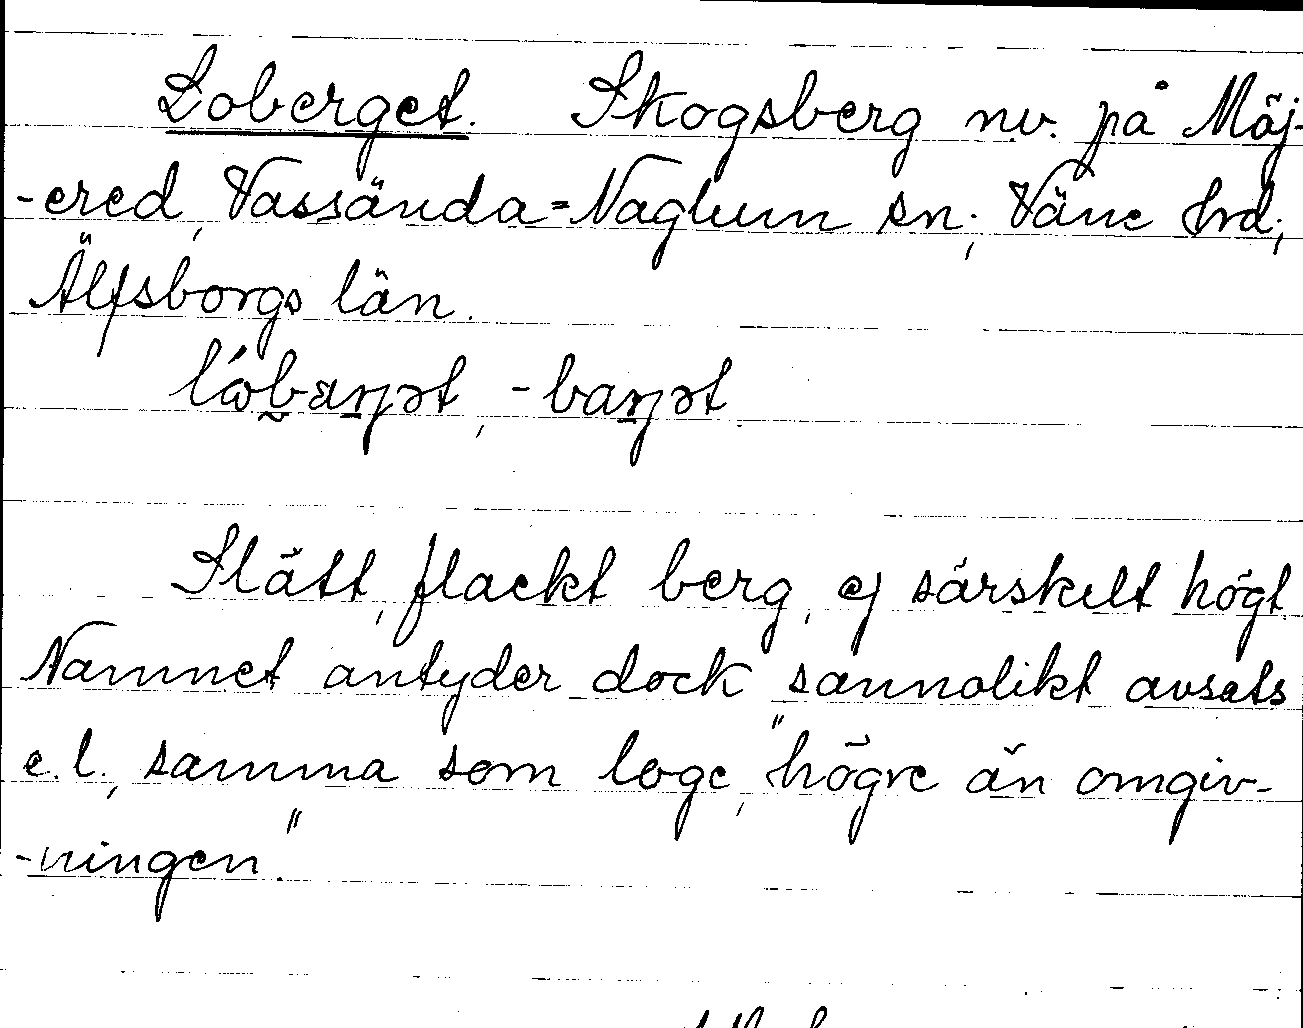 Loberget. Skogsberg nv. på Möj-
-ered, Vassända=Naglum sn; Väne hrd;
Älfsborgs län.
Slätt, flackt berg, ej särskilt högt.
Namnet antyder dock sannolikt avsats
e.l., samma som loge, "högre än omgiv-
-ningen."